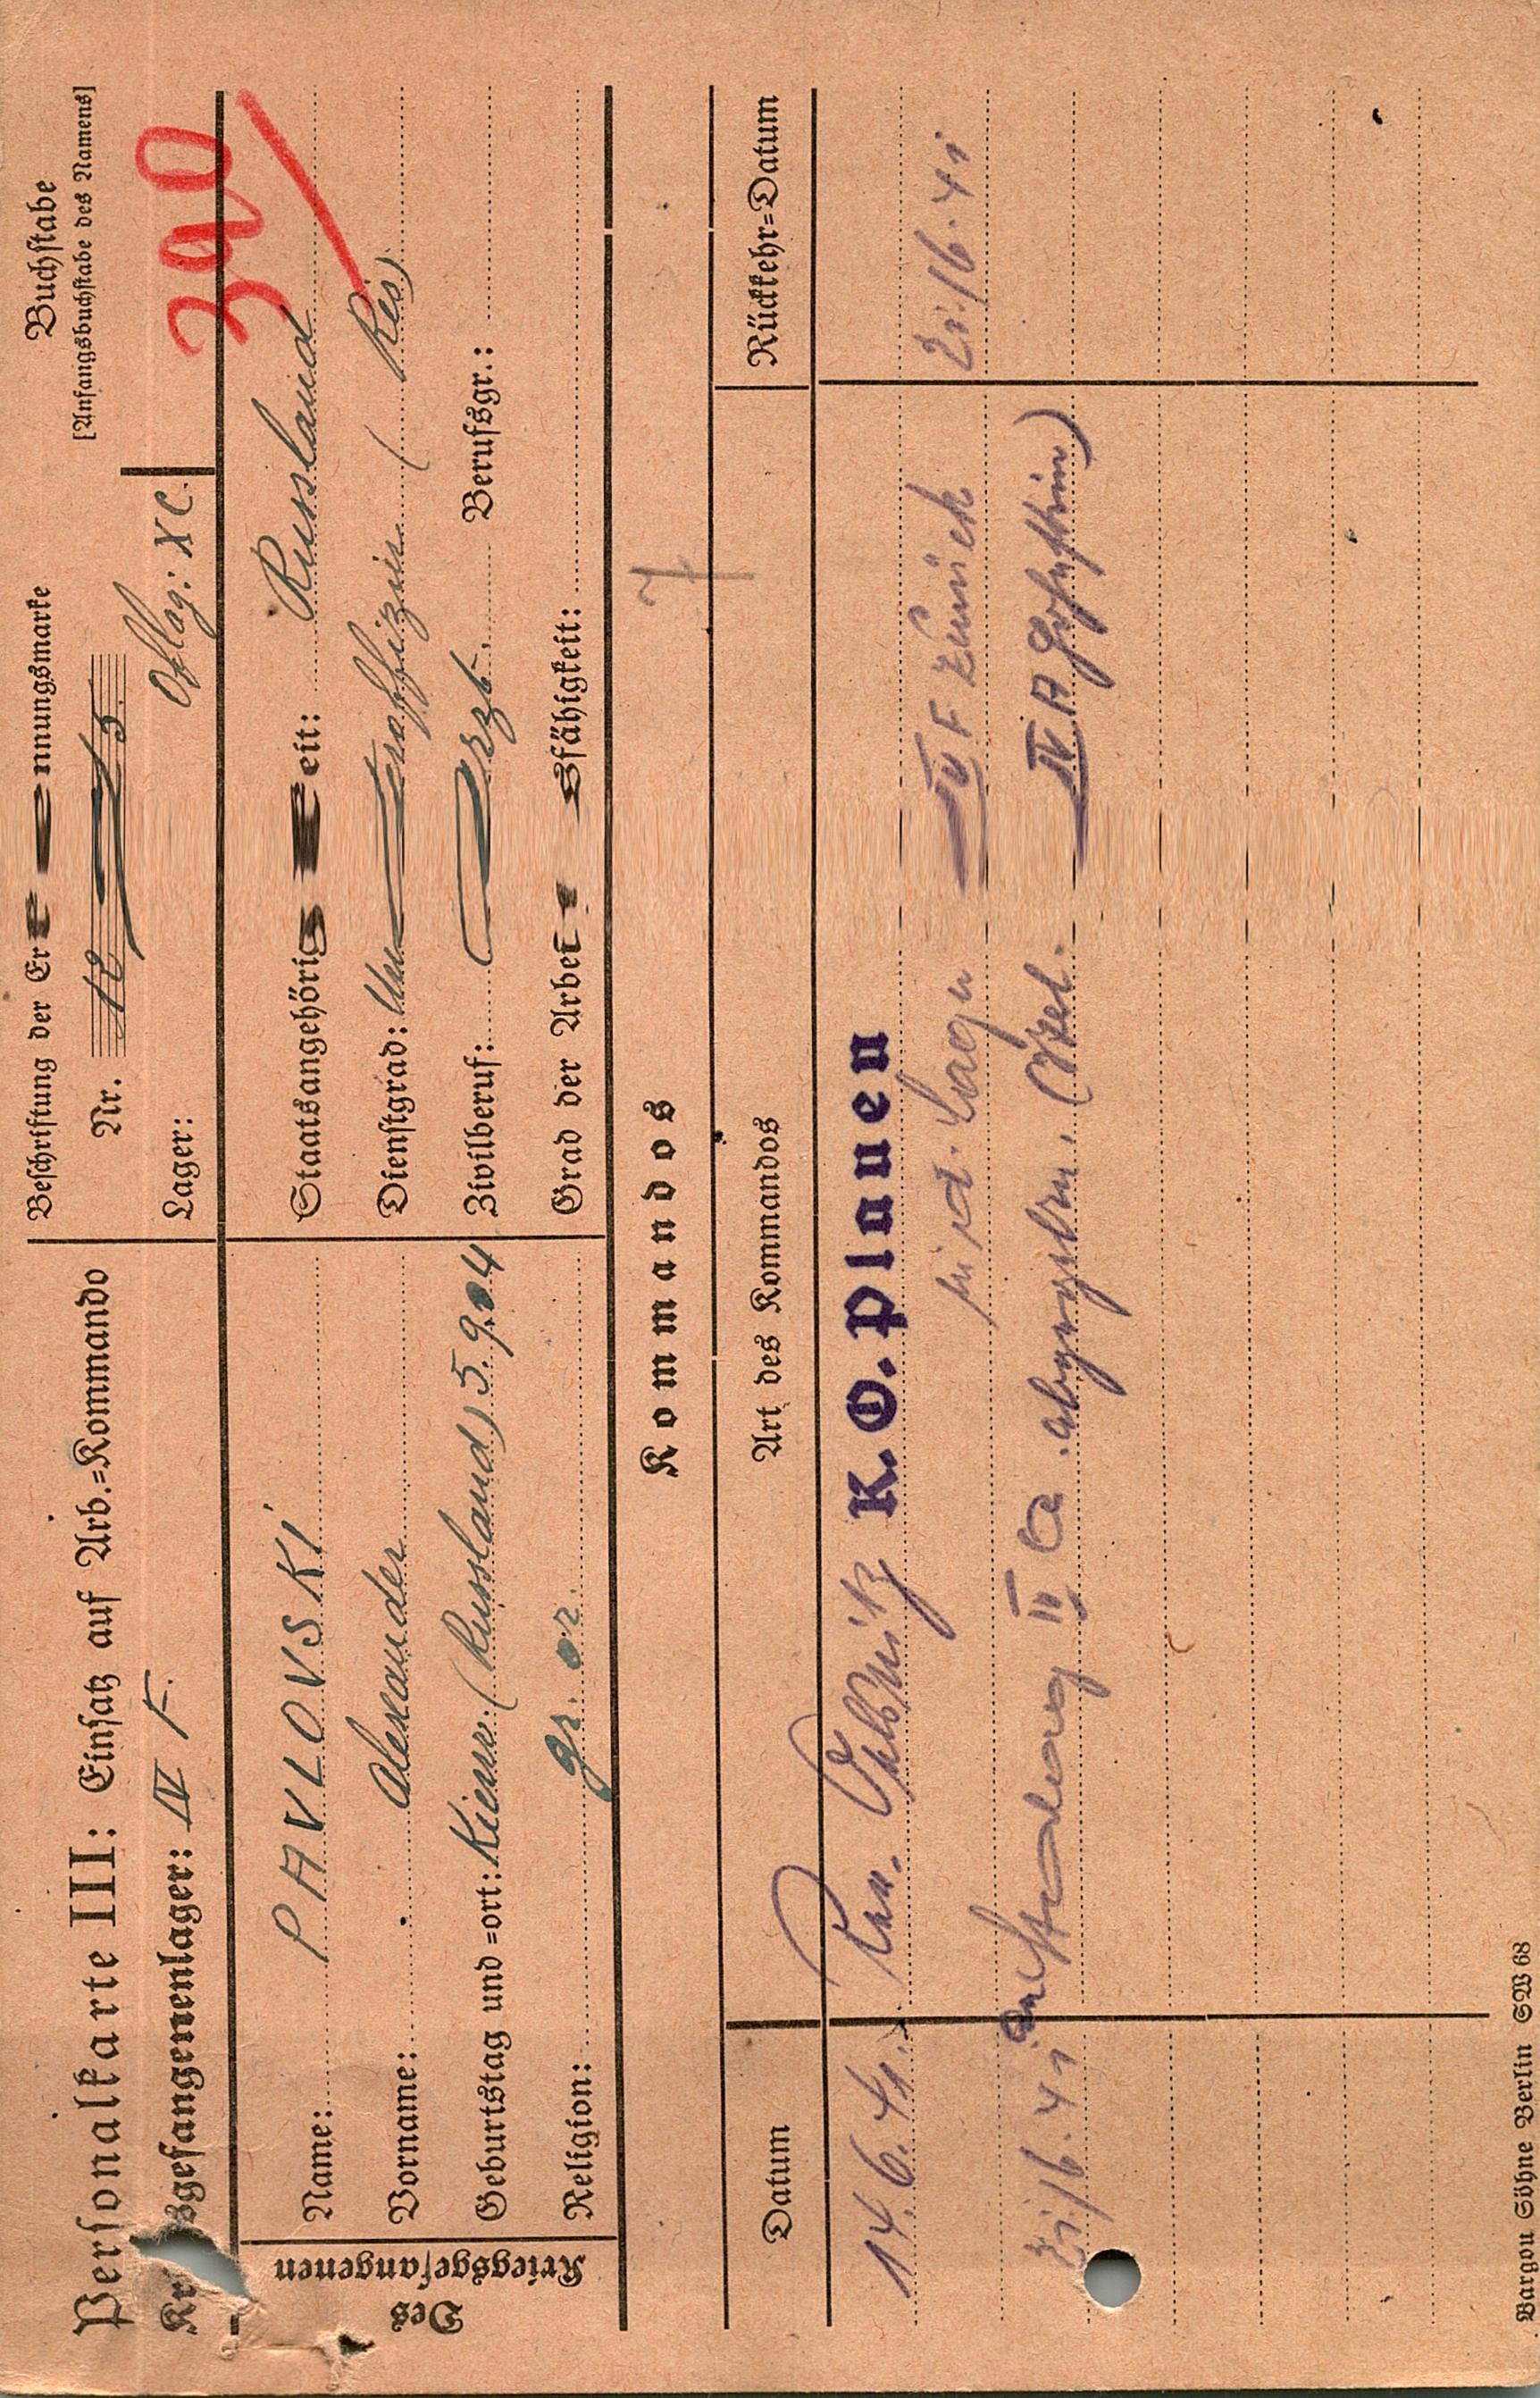 Personalkarte III: Einsatz auf Arb.=Kommando
Kr sgefangenenlager: IV F.
Beschriftung der Er nnungsmarke
Nr.
Lager: Oflag: X C.
Buchstabe
[Anfangsbuchstabe des Namens]
Des
Kriegsgefangenen
Name: PAVLOVSKI
Vorname: Alexander
Geburtstag und =ort: Kiew (Russland) 5.9.04
Religion: gr. or.
Staatsangehörig eit: Russland
Dienstgrad: (Res)
Zivilberuf: Arzt. Berufsgr.:
Grad der Arbei sfähigkeit:
Kommandos
Datum Art des Kommandos Rückkehr=Datum
14.6.41. K.O. Plauen
Lager IV F zurück 21/6.41
21/6.41 IV A Hohnstein)
Bargou Söhne Berlin SW 68